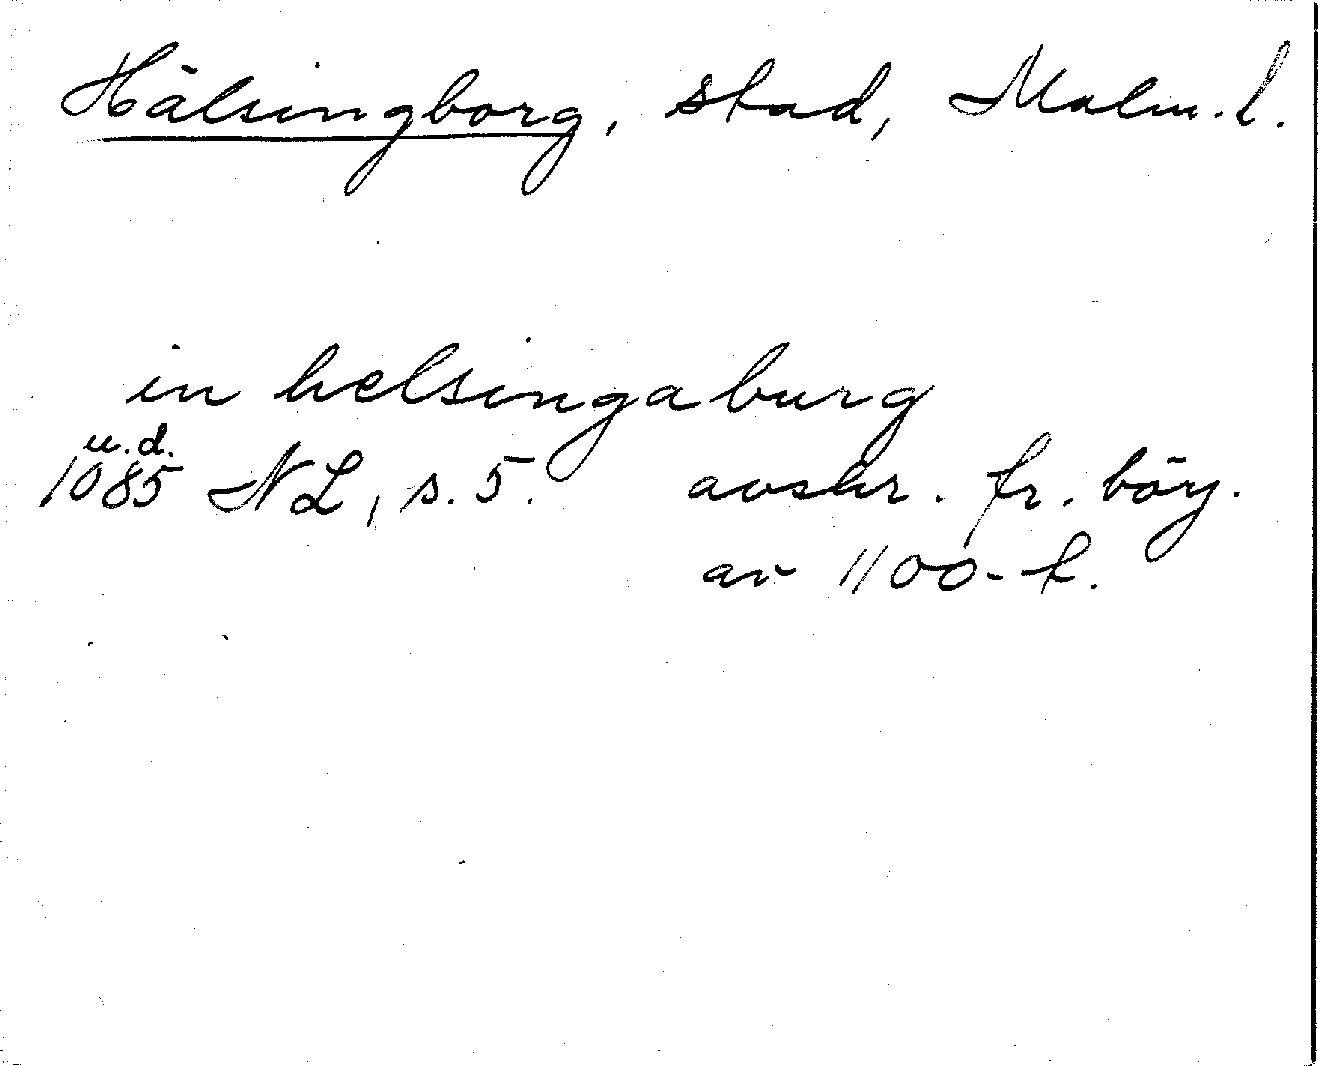 Hälsingborg, stad, Malm. l.
in helsingaburg
u.d.
1085 NL, s. 5. avskr. fr. börj.
av 1100-t.